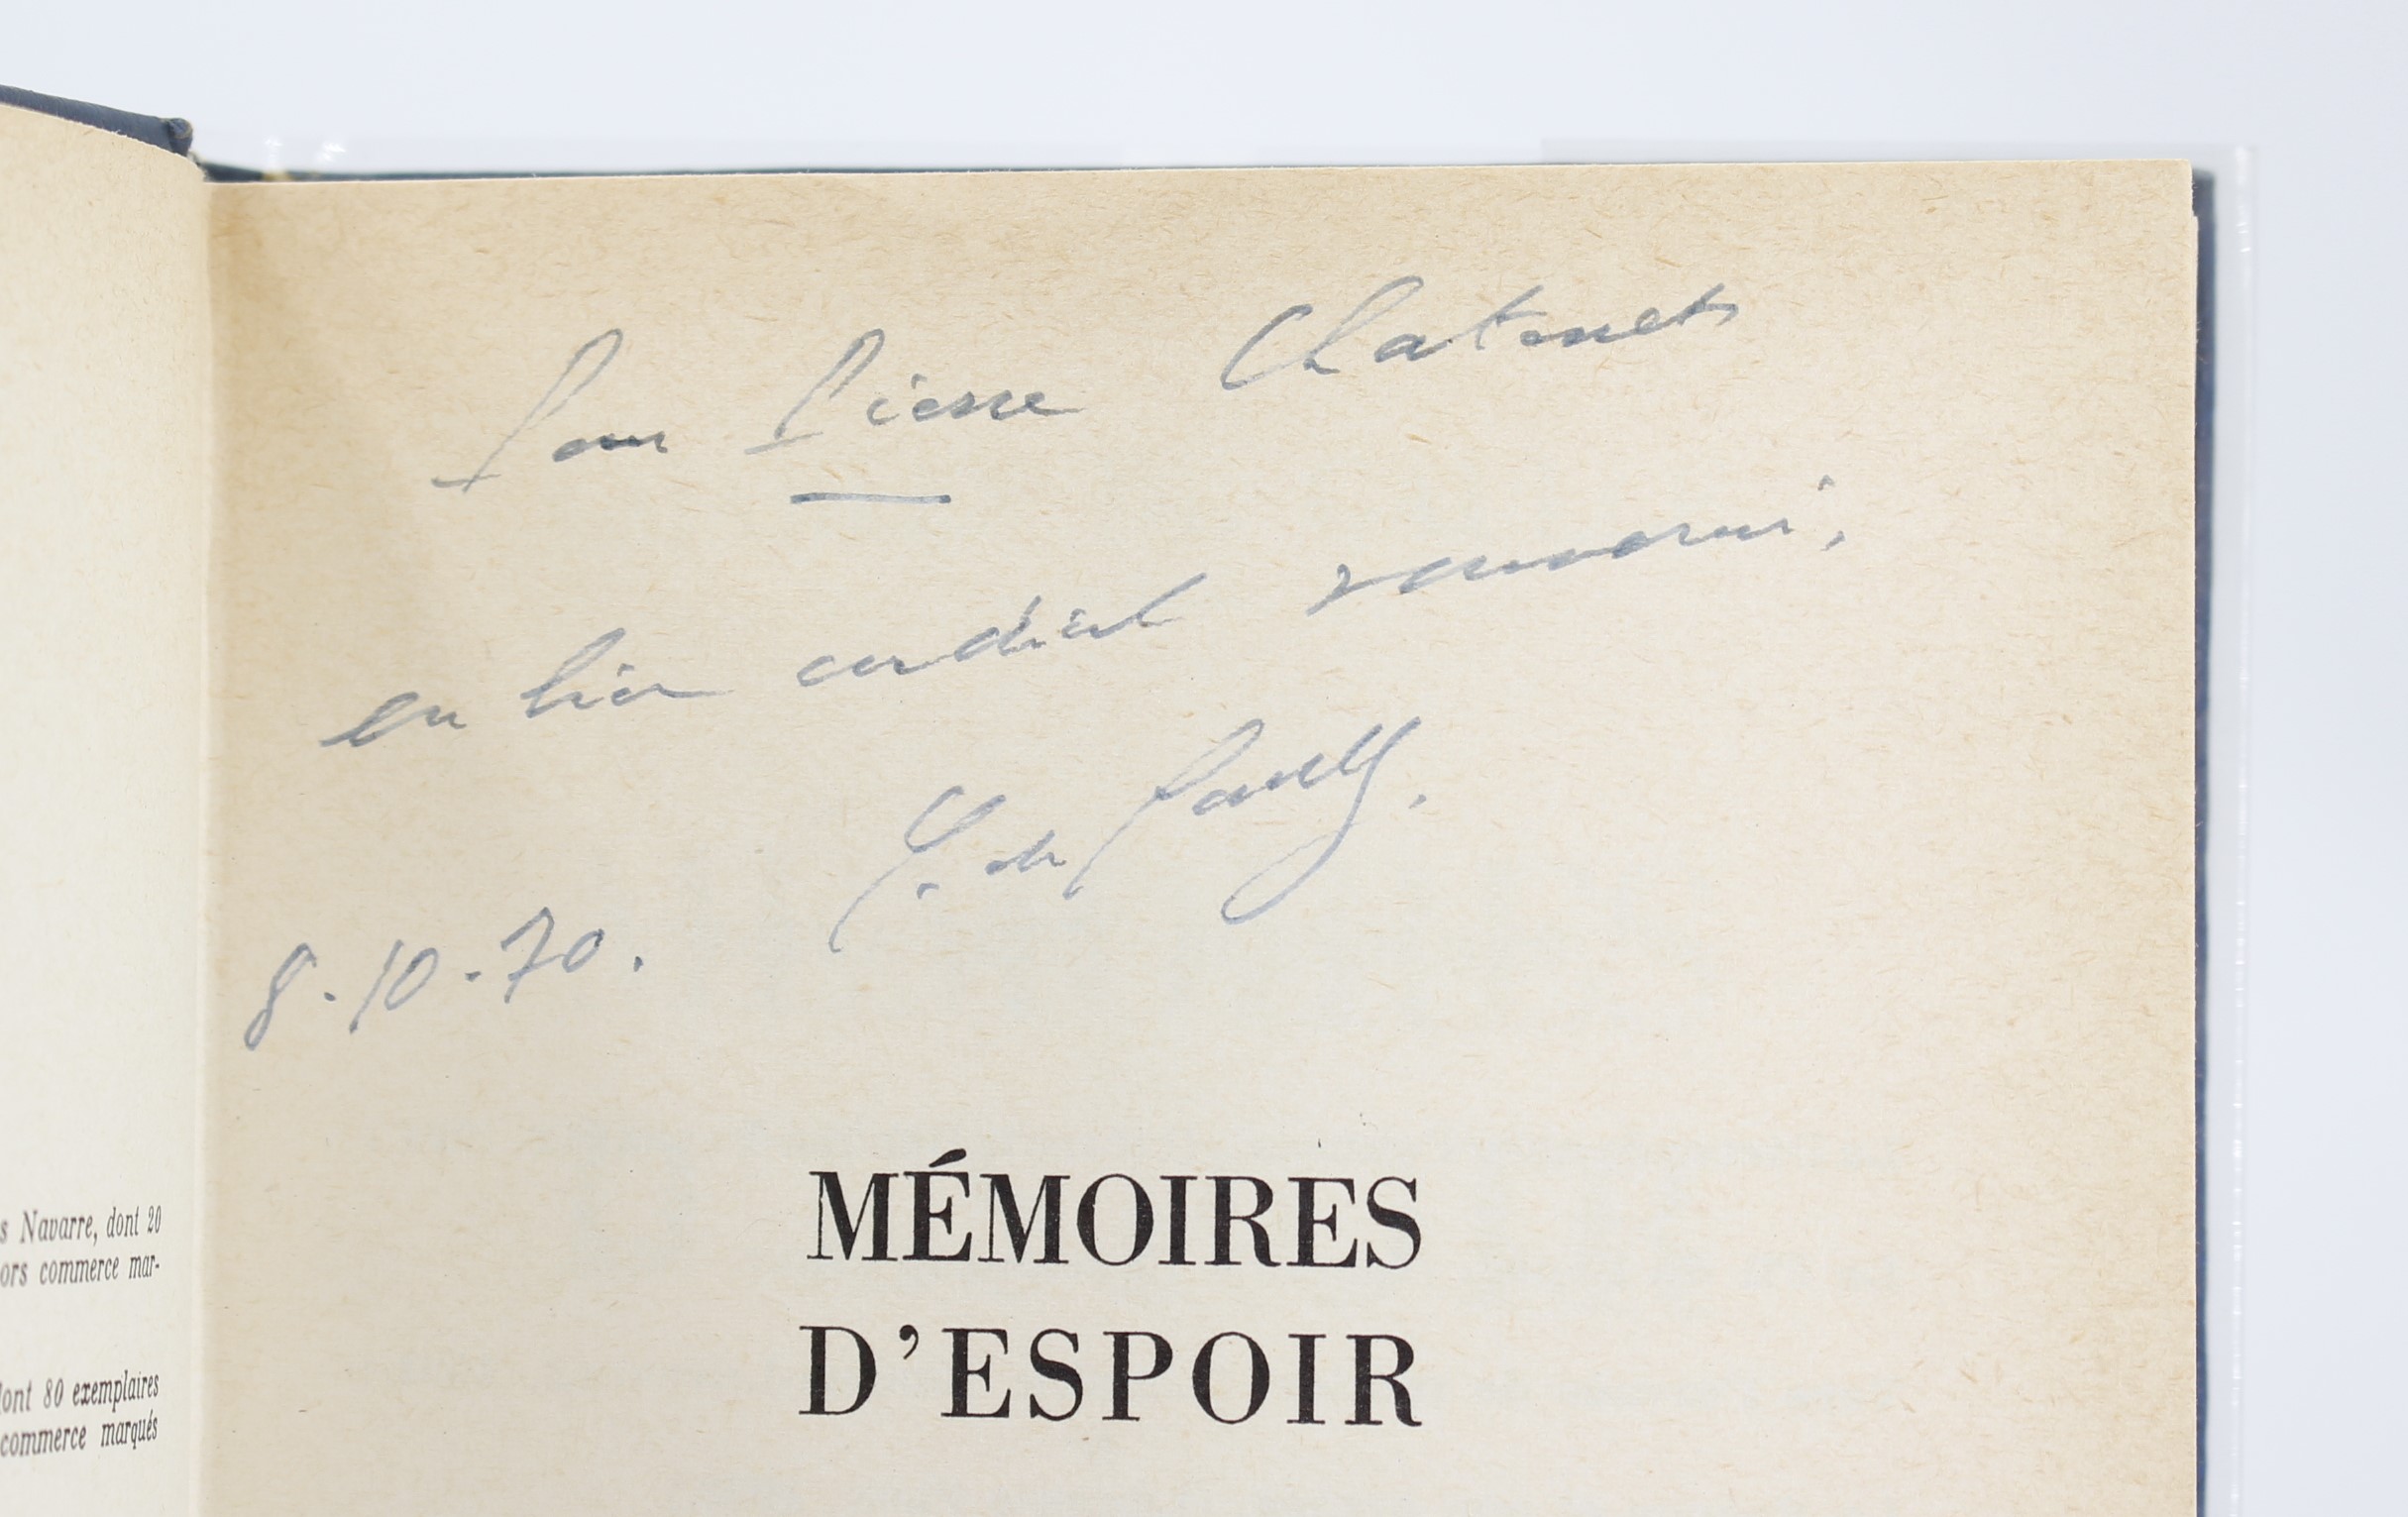 s Navarre, dont 20
ors commerce mar-
dont 80 exemplaires
commerce marqués
Pour Pierre Chatenet
en bien cordial souvenir,
C. de Gaulle.
8.10.70.
MÉMOIRES
D'ESPOIR